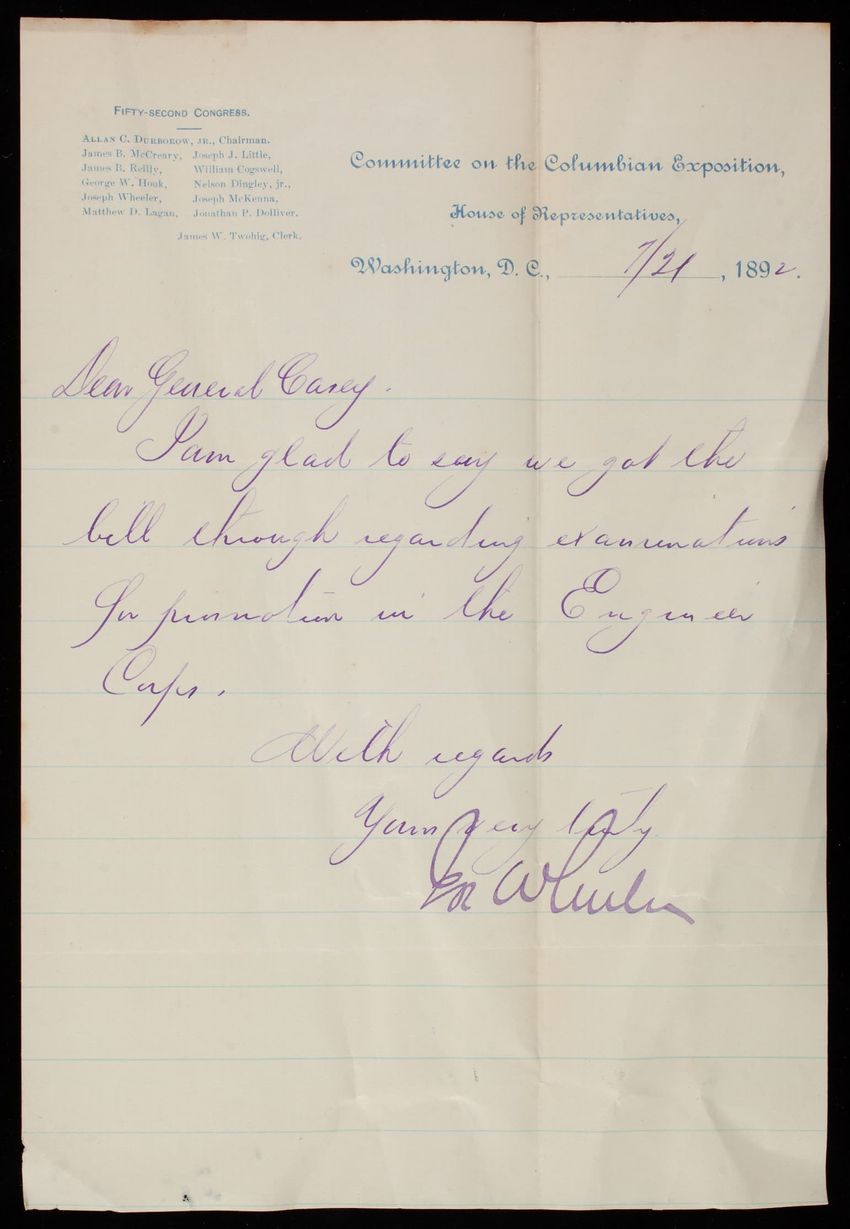 FIFTY-SECOND CONGRESS.
ALLAN C. DURBOROW, JR., Chairman.
James B. McCreary, Joseph J. Little,
James B. Reilly, William Cogswell,
George W. Houk, Nelson Dingley, jr.,
Joseph Wheeler, Joseph McKenna,
Matthew D. Lagan, Jonathan P. Dolliver.
James W. Twohig, Clerk.
Committee on the Columbian Exposition,
House of Representatives,
Washington, D. C., 7/21, 1892.
Dear General Casey.
I am glad to say we got the
bill through regarding examinations
for promotion in the Engineer
Corps.
With regards
Yours very truly
Jos Wheeler